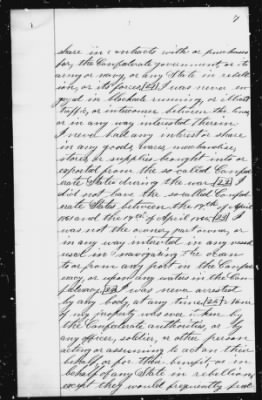 7
share in contracts with or purchases
for, the Confederate government, or its
army or navy, or any State in rebell-
ion, or its forces [21] I was never en-
gaged in blockade running, or illicit
traffic, or intercourse between the lines
or in any way interested therein
I never had any interest or share
in any goods, wares, merchandise,
stores, or supplies brought into or
exported from the so-called Confed-
erate States during the war [22] I
did not leave the so-called Confed-
erate States between the 19th of April
1861 and the 19th of April 1865 [23] I
was not the owner, part owner, or
in any way interested in any vessel
used in navigating the ocean
to or from any port in the Confeder-
acy, or upon any waters in the Con-
federacy. [24] I was never arrested
by any body, at any time [25] None
of my property was ever taken by
the Confederate authorities, or by
any officer, soldier, or other person
acting or assuming to act on their
behalf or for their benefit, or in
behalf of any State in rebellion
except they would frequently